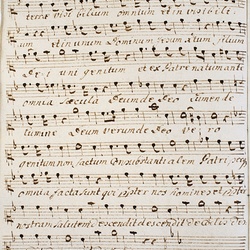 terrae visibilium omnium et invisibili
um et in unum Dominum Jesum Christum filium
De i uni genitum et ex Patre natum ante
omnia saecula Deum de Deo lumen de
lumine Deum verum de Deo ve ro
genitum non factum consubstantialem Patri, per
omnia facta sunt qui propter nos homines et propter
nostram salutem descendit descendit de caelis